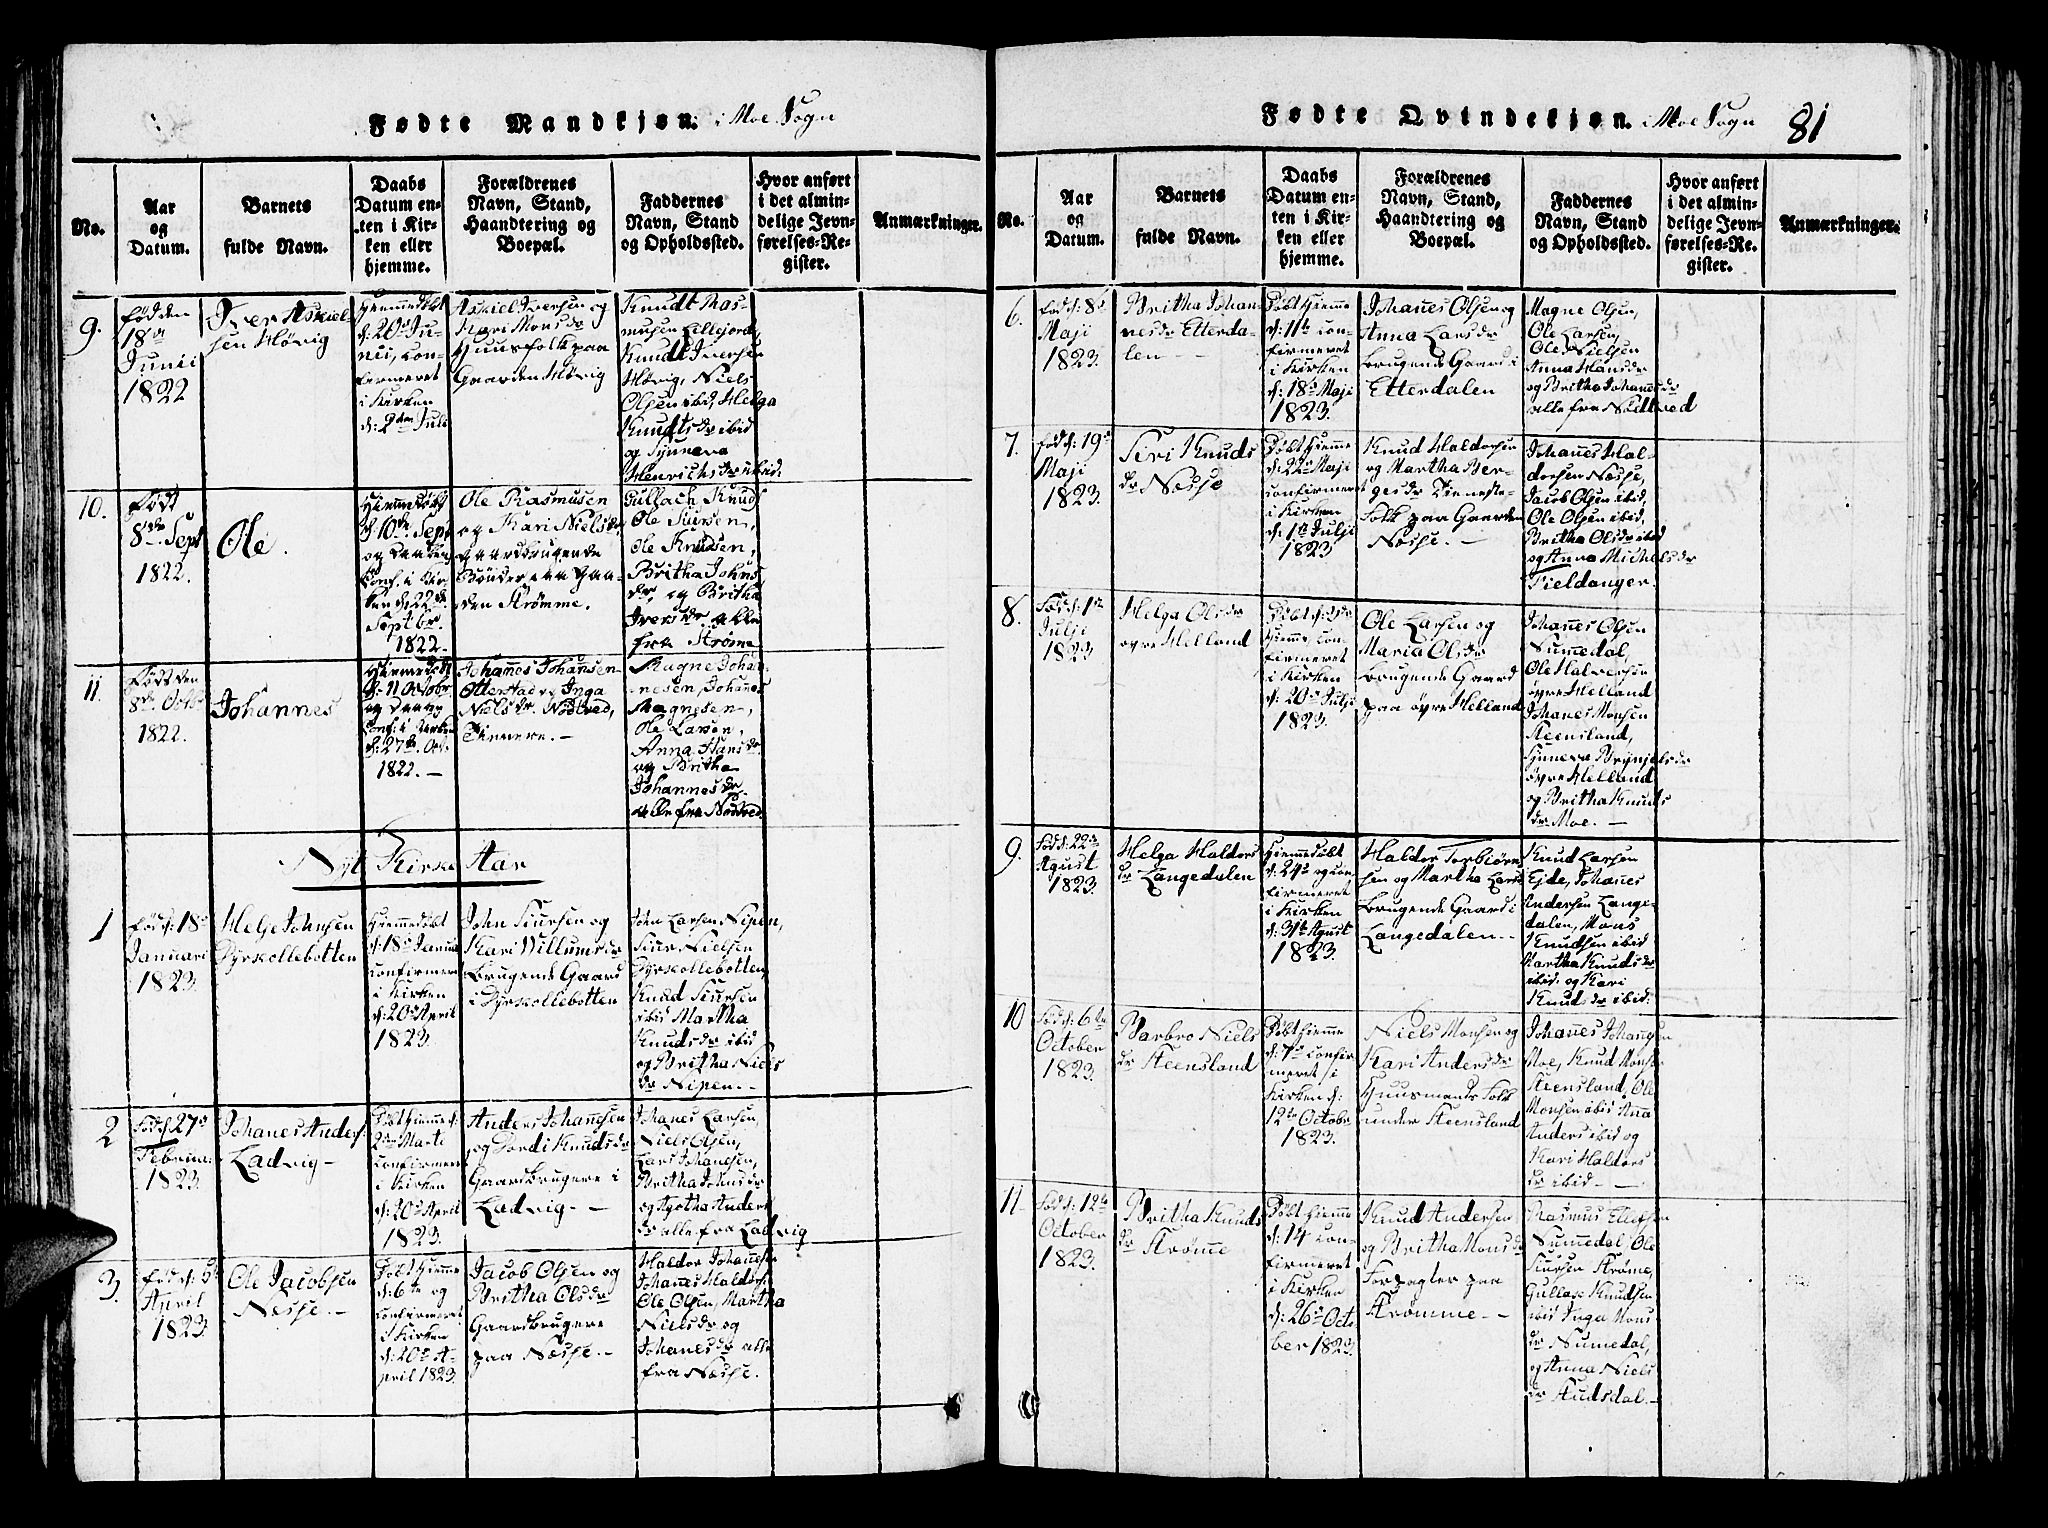 Fødte Mandkjøn. i Moe Sogn
No.
Aar
og
Datum.
Barnets
fulde Navn.
Daabs
Datum en-
ten i Kir-
ken eller
hjemme.
Forældrenes
Navn, Stand,
Haandtering og
Boepæl.
Faddernes
Navn, Stand
og Opholdssted.
Hvor anført
i det almin-
delige Jevn-
førelses-Re-
gister.
Anmærkninger.
9.
født den
18de
Junii
1822
Iver Askiel-
sen Høvig
Hjemmedøbt
d: 20de Ju-
nii, con-
firmeret
i Kirken
d: 2den Juli
Askiel Iversen og
Kari Monsdr
Huusfolk paa
Gaarden Høvig
Knudt Ras-
musen Lillejord,
Knudt Iversen
Høvig, Niels
Olsen ibid, Helga
Knudtsdr ibid
og Synneva
Henrichsdr ibid.
10.
Født
8de Sept
1822.
Ole.
Hjemmedøbt
d. 10de Sept
og Daaben
Conf. i Kir-
ken d. 22de
Septbr.
1822.
Ole Rasmusen
og Kari Nielsdr,
Gaardbrugende
Bønder paa Gaa-
den Strømme.
Gullach Knuds
Ole Siursen,
Ole Knudsen,
Britha Johns
dr, og Britha
Iversdr alle
fra Strøme
11.
Født den
8de Octbr
1822.
Johannes
Hjemmedøbt
d. 11 Octobr
og Daaben
Conf. i Kirken
d. 27de Oct.
1822. -
Johannes Johansen
Otterstad og Inga
Nielsdr. Nødtved,
Tienere. -
Magne Johan-
nesen, Johanes
Magnesen,
Ole Larsen,
Anna Hansdr
og Britha
Johannesdr
alle fra Nødtved
Nyt Kirke Aar
1
fød d: 18de
Januari
1823.
Helje Johnsen
Dyrkollebotten
Hjemmedøbt
d: 18de Janua
confirmer
i Kirken
d: 20de April
1823.
John Siursen og
Kari Willumsdr
brugende Gaard
i Dyrkollebotten
John Larsen Nipen,
Siur Nielsen
Dyrkollebotten,
Knud Siursen
ibid Martha
Knudsdr ibid
og Britha Niels
dr Nipen. -
2
Fød d. 27de
Februar
1823.
Johanes Anders:
Ladvig -
Døbt hjemme d:
2den Marti
confirmer
i Kirken
d: 20de April
1823.
Anders Johannsen
og Jordi Knudsdr
Gaardbrugere i
Ladvig -
Johanes Larsen,
Niels Olsen,
Lars Johanesen,
Britha Johnsdr
og Agotha Anders
dr alle fra Ladvig
3.
fød d: 5te
April
1823.
Ole Jacobsen
Nesse. -
Døbt hjemme
d: 6te og
confirmeret
i Kirken
d: 20de A-
pril 1823.
Jacob Olsen og
Britha Olsdr
Gaardbrugere
paa Nesse. -
Haldor Johanesen
Johanes Haldors:
Ole Olsen, Martha
Nielsdr og
Johanesdr alle
fra Nesse.
Fødte Qvindekjøn. i Moe Sogn
81
No.
Aar
og
Datum.
Barnets
fulde Navn.
Daabs
Datum en-
ten i Kir-
ken eller
hjemme.
Forældrenes
Navn, Stand,
Haandtering og
Boepæl.
Faddernes
Navn, Stand
og Opholdssted.
Hvor anført
i det almin-
delige Jevn-
førelses-Re-
gister.
Anmærkninger.
6.
fød d: 8de
Maji
1823.
Britha Johan-
nesdr Etterda-
len -
Døbt hjemme
d: 11te con-
firmeret
i Kirken
d: 18de Maji
1823.
Johanes Olsen og
Anna Larsdr
brugende Gaard i
Etterdalen
Magne Olsen,
Ole Larsen,
Ole Nielsen
Anna Hansdr
og Britha Johanesdr
alle fra Nødtved
7.
fød d: 19de
Maji
1823.
Siri Knuds
dr Nesse
Døbt hjemme
d: 22de Maji
confirmeret
i Kirken
d: 1ste Julji
1823
Knud Haldorsen
og Martha Ber-
gesdr Tieneste-
folk paa Gaarden
Nesse. -
Johanes Hal-
dorsen Nesse,
Jacob Olsen ibid,
Ole Olsen ibid,
Britha Olsdr ibid
og Anna Michelsdr
Fieldanger.
8.
Fød d: 1ste
Julji
1823
Helga Olsdr
øvre Helland
Døbt d: 3de
hjemme, con-
firmeret
i Kirken
d: 20de Julji
1823.
Ole Larsen og
Maria Olsdr
brugende Gaard
paa øvre Helland
Johanes Olsen
Numedal,
Ole Halversen
øvre Helland
Johanes Monsen
Steensland,
Synneva Brynjelsdr
øvre Helland
og Britha Knuds
dr Moe. -
9.
Fød d: 22de
Agust
1823
Helga Haldors
dr Langedalen
Hjemmedøbt
d: 24de og con-
firmeret
i Kirken
d: 31te Agust
1823.
Haldor Torbiørn-
sen og Martha Larsd
brugende Gaard i
Langedalen. -
Knud Larsen
Ejde, Johanes
Andersen Lange-
dalen, Mons
Knudsen ibid
Martha Knudsdr
ibid. og Kari
Knudsdr ibid.
10
Fød d: 6te
October
1823.
Barbro Niels
dr Steensland
Døbt hjemme
d: 7de confir
meret i
Kirken d:
12te October
1823.
Niels Monsen og
Kari Andersdr
Huusmands Folk
under Steensland
Johanes Johansen
Moe, Knud Mons:
Steensland, Ole
Monsen ibid Ana
Anders ibid og
Kari Haldors
dr ibid -
11
Fød d: 12te
October
1823.
Britha Knuds
dr Strømme
Døbt hjemme
d: 14 con-
firmeret
i Kirken
d: 26de Octo
ber 1823.
Knud Andersen
og Britha Monsdr
Forpagter paa
Strømme -
Rasmus Ellefsen
Numedal Ole
Siursen Strøme,
Gullak Knudsen
ibid Inga Mons
dr Numedal,
og Anna Niels
dr Audsdal. -